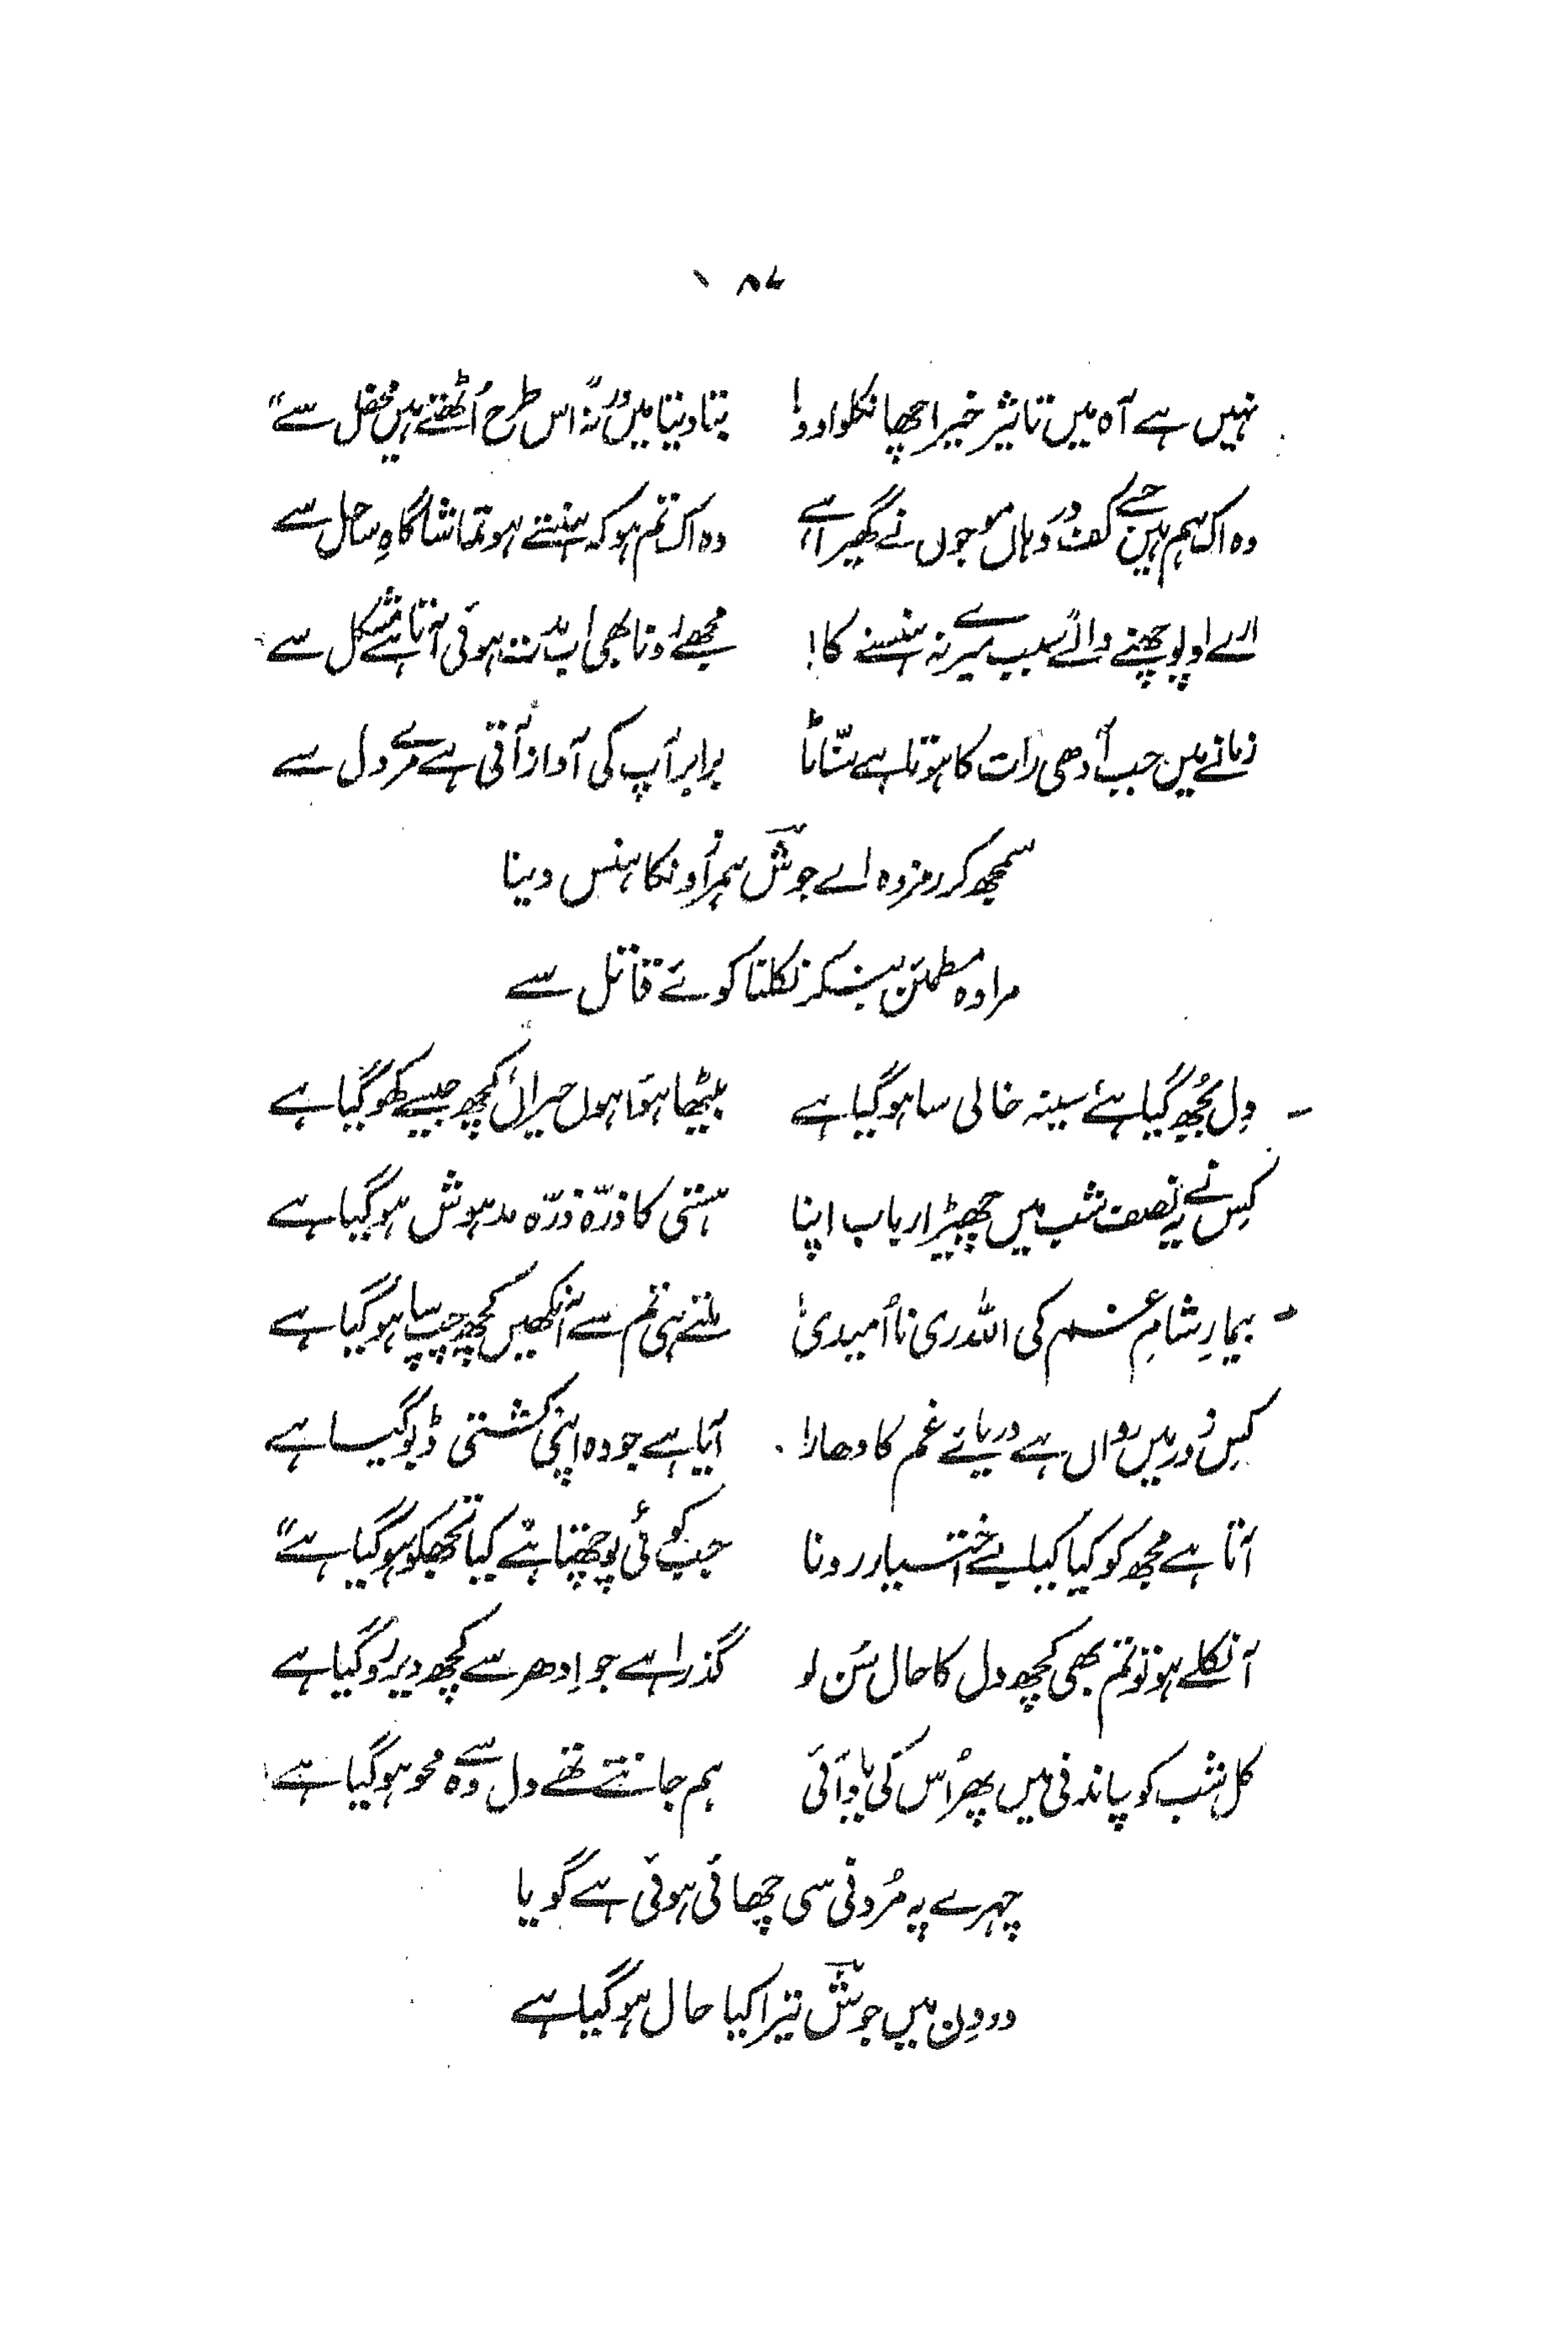 ۱۸۷
نہیں ہے آہ میں تاثیر خیر اچھا نکلوا دو! بتا دیتا میں ورنہ اس طرح اُٹھتے ہیں محفل سے"
وہ اک ہم ہیں جسے کف در دہاں موجوں نے گھیرا ہے وہ اک تم ہو کہ ہنستے ہو تماشا گاہِ ساحل سے
ارے او پوچھنے والے سبب میرے نہ ہنسنے کا! مجھے رونا بھی اب مدت ہوئی آتا ہے مشکل سے
زمانے میں جب آدھی رات کا ہوتا ہے سنّاٹا برابر آپ کی آواز آتی ہے مرے دل سے
سمجھ کر رمز وہ اے جوشؔ ہمراز ونکا ہنس دینا
مرا وہ مطمئن بنکر نکلنا کوئے قاتل سے
دِل بُجھ گیا ہے سینہ خالی سا ہو گیا ہے بیٹھا ہوٗا ہوں حیراں کچھ جیسے کھو گیا ہے
کِس نے یہ نصف شب میں چھیڑا رباب اپنا ہستی کا ذرّہ ذرّہ مدہوش ہو گیا ہے
بیمارِ شامِ غم کی اللہ ری نا اُمیدی ملتے ہی تم سے آنکھیں کچھ چپ سا ہو گیا ہے
کِس زور میں رواں ہے دریائے غم کا دھارا آیا ہے جو وہ اپنی کشتی ڈبو گیا ہے
آتا ہے مجھ کو کیا کیا بے اختیار رونا جب کوئی پوچھتا ہے کیا تجھکو ہو گیا ہے"
آ نکلے ہو تو تم بھی کچھ دل کا حال سُن لو گذرا ہے جو اِدھر سے کچھ دیر رو گیا ہے
کل شب کو چاندنی میں پھر اُس کی یاد آئی ہم جانتے تھے دل سے وہ محو ہو گیا ہے
چہرے پہ مُردنی سی چھائی ہوئی ہے گویا
دو دِن میں جوشؔ تیرا کیا حال ہو گیا ہے